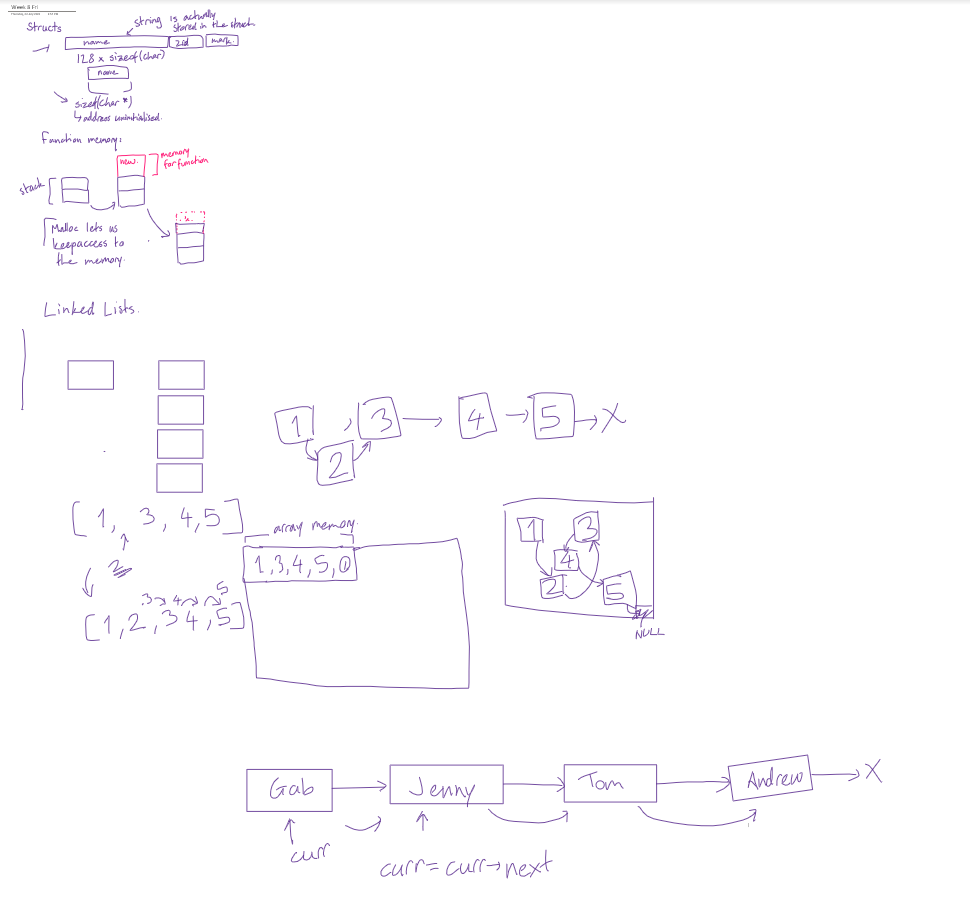 Week 8 Fri
Structs
string is actually
stored in the struct
name zid mark
128 x sizeof(char)
name
sizeof(char *)
↳ address uninitialised.
Function memory:
new.
memory
for function
stack
Malloc lets us
keep access to
the memory.
Linked Lists.
1 , 3 4 5 X
2
[ 1, 3, 4,5 ]
2
3 4 5
[ 1,2,3 4,5 ]
array memory.
1,3,4,5,0
1 3
4
2 5
NULL
Gab Jenny Tom Andrew X
curr
curr = curr → next